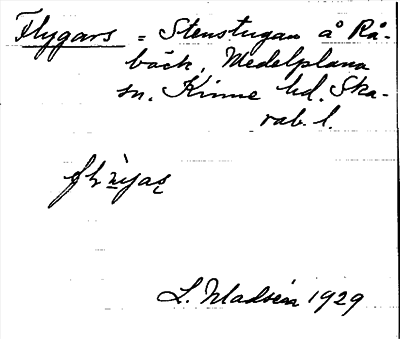 Flygars = Stenstugan å Rå-
bäck, Medelplana
sn. Kinne hd. Ska-
rab. l.
L. Madsén 1929